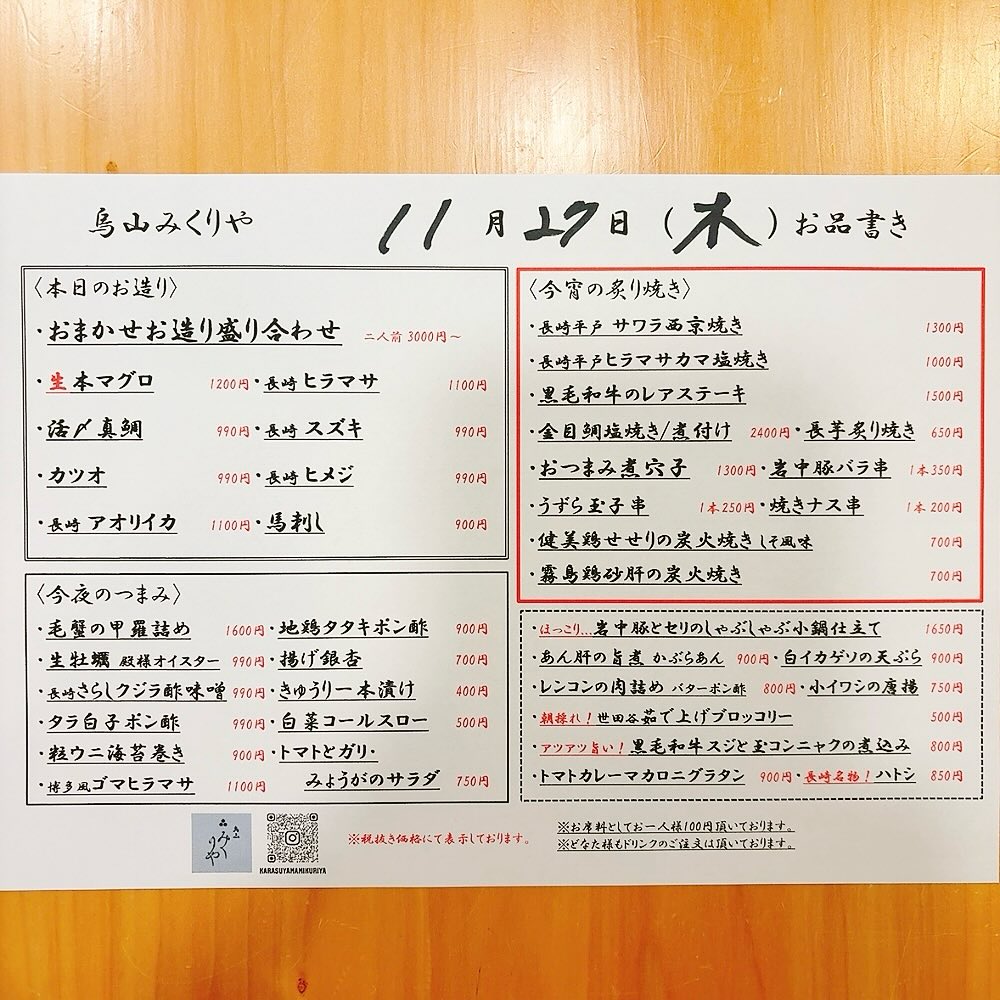 烏山みくりや 11月27日(木)お品書き
〈本日のお造り〉
・おまかせお造り盛り合わせ 二人前 3000円〜
・生本マグロ 1200円・長崎 ヒラマサ 1100円
・活〆真鯛 990円・長崎 スズキ 990円
・カツオ 990円・長崎 ヒメジ 990円
・長崎 アオリイカ 1100円・馬刺し 900円
〈今夜のつまみ〉
・毛蟹の甲羅詰め 1600円・地鶏タタキポン酢 900円
・生牡蠣 殿様オイスター 990円・揚げ銀杏 700円
・長崎さらしクジラ酢味噌 990円・きゅうり一本漬け 400円
・タラ白子ポン酢 990円・白菜コールスロー 500円
・粒ウニ海苔巻き 900円・トマトとガリ・
・博多風ゴマヒラマサ 1100円 みょうがのサラダ 750円
〈今宵の炙り焼き〉
・長崎平戸 サワラ西京焼き 1300円
・長崎平戸ヒラマサカマ塩焼き 1000円
・黒毛和牛のレアステーキ 1500円
・金目鯛塩焼き/煮付け 2400円・長芋炙り焼き 650円
・おつまみ煮穴子 1300円・岩中豚バラ串 1本350円
・うずら玉子串 1本250円・焼きナス串 1本200円
・健美鶏せせりの炭火焼き しそ風味 700円
・霧島鶏砂肝の炭火焼き 700円
・ほっこり…岩中豚とセリのしゃぶしゃぶ小鍋仕立て 1650円
・あん肝の旨煮 かぶらあん 900円・白イカゲソの天ぷら 900円
・レンコンの肉詰め バターポン酢 800円・小イワシの唐揚 750円
・朝採れ!世田谷茹で上げブロッコリー 500円
・アツアツ旨い!黒毛和牛スジと玉コンニャクの煮込み 800円
・トマトカレーマカロニグラタン 900円・長崎名物!ハトシ 850円
みくりや
KARASUYAMAMIKURIYA
※税抜き価格にて表示しております。
※お席料としてお一人様100円頂いております。
※どなた様もドリンクのご注文は頂いております。